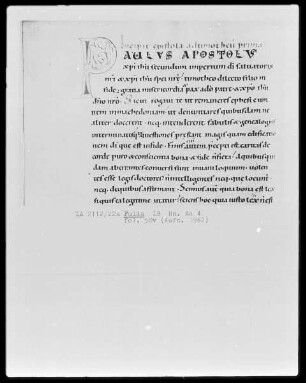 Incipit epistola ad timotheū prima
PAULUS APOSTOLUS
xpi ihu secundum imperium di saluatoris
nri & xpi ihu spei nrę timotheo dilecto filio in
fide gratia misericordia pax a do patre & xpo ihu
dno nro Sicut rogaui te ut remaneres ephesi cum
irem in macedoniam ut denuntiares quibusdam ne
aliter docerent neq. intenderent fabulis & genealogiis
interminatis quę questiones prestant magis quam edificatio
nem di que est in fide Finis autem precepti est caritas de
corde puro & conscientia bona & fide n ficta A quibus qui
dam aberrantes conuersi sunt in uaniloquium uolen
tes esse legis doctores n intellegentes neq. que locuntur
neq. de quibus affirmant Scimus aut quia bona est lex
si quis ea legitime utatur sciens hoc quia iusto lex n est
LA 2112/22a Fulda LB Hs. Aa 4
Fol. 90v (Aufn. 1962)